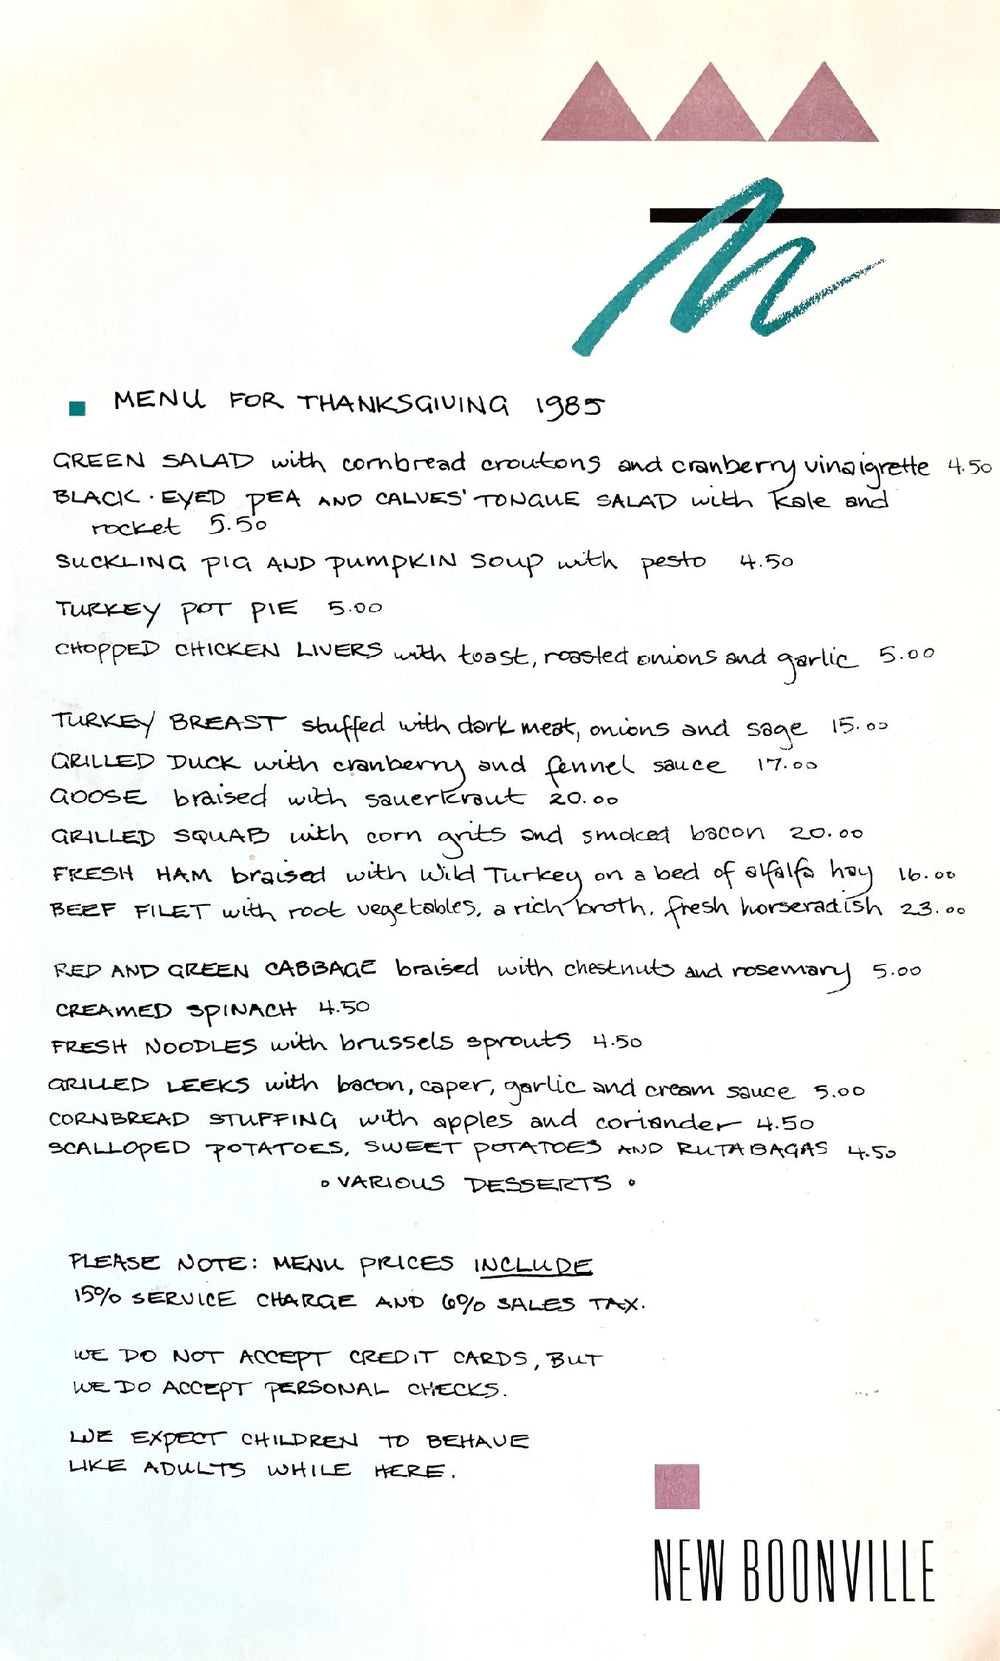 MENU FOR THANKSGIVING 1985
GREEN SALAD with cornbread croutons and cranberry vinaigrette 4.50
BLACK-EYED PEA AND CALVES' TONGUE SALAD with kale and
rocket 5.50
SUCKLING PIG AND PUMPKIN SOUP with pesto 4.50
TURKEY POT PIE 5.00
CHOPPED CHICKEN LIVERS with toast, roasted onions and garlic 5.00
TURKEY BREAST stuffed with dark meat, onions and sage 15.00
GRILLED DUCK with cranberry and fennel sauce 17.00
GOOSE braised with sauerkraut 20.00
GRILLED SQUAB with corn grits and smoked bacon 20.00
FRESH HAM braised with Wild Turkey on a bed of alfalfa hay 16.00
BEEF FILET with root vegetables, a rich broth, fresh horseradish 23.00
RED AND GREEN CABBAGE braised with chestnuts and rosemary 5.00
CREAMED SPINACH 4.50
FRESH NOODLES with brussels sprouts 4.50
GRILLED LEEKS with bacon, caper, garlic and cream sauce 5.00
CORNBREAD STUFFING with apples and coriander 4.50
SCALLOPED POTATOES, SWEET POTATOES AND RUTABAGAS 4.50
• VARIOUS DESSERTS •
PLEASE NOTE: MENU PRICES INCLUDE
15% SERVICE CHARGE AND 6% SALES TAX.
WE DO NOT ACCEPT CREDIT CARDS, BUT
WE DO ACCEPT PERSONAL CHECKS.
WE EXPECT CHILDREN TO BEHAVE
LIKE ADULTS WHILE HERE.
NEW BOONVILLE